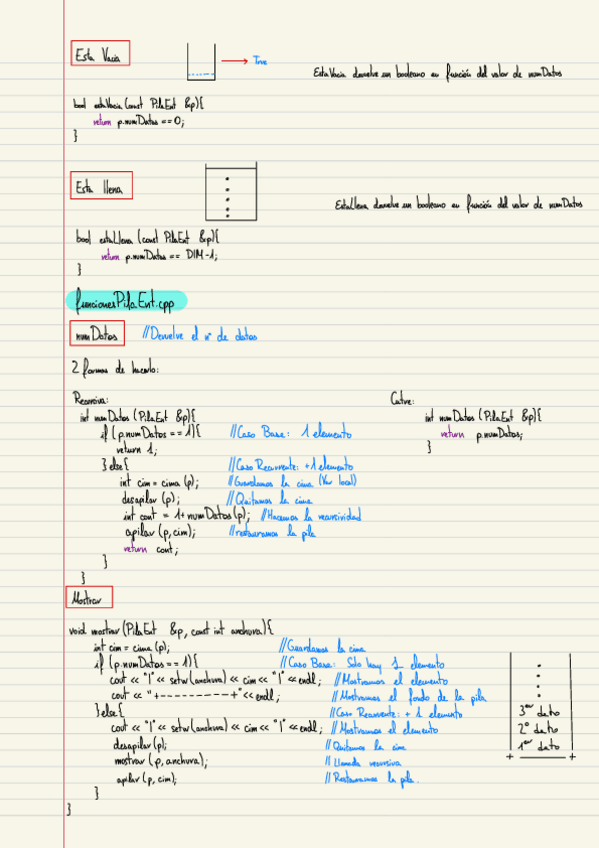 Esta Vacia
True
EstaVacia devuelve un booleano en función del valor de numDatos
bool estaVacia (const PilaEnt &p){
return p.numDatos == 0;
}
Esta llena
EstaLlena devuelve un booleano en función del valor de numDatos
bool estaLlena (const PilaEnt &p){
return p.numDatos == DIM-1;
}
funcionesPilaEnt.cpp
numDatos //Devuelve el nº de datos
2 formas de hacerlo:
Recursiva:
int numDatos (PilaEnt &p){
if (p.numDatos == 1){ //Caso Base: 1 elemento
return 1;
}else{ //Caso Recurrente: +1 elemento
int cim = cima (p); //Guardamos la cima (Var local)
desapilar (p); //Quitamos la cima
int cont = 1+numDatos(p); //Hacemos la recursividad
apilar (p,cim); //restauramos la pila
return cont;
}
}
int numDatos (PilaEnt &p){
return p.numDatos;
}
Mostrar
void mostrar (PilaEnt &p, const int anchura){
int cim = cima (p); //Guardamos la cima
if (p.numDatos == 1){ //Caso Base: Solo hay 1 elemento
cout << "|" << setw(anchura) << cim << "|" << endl; //Mostramos el elemento
cout << "+-----------+" << endl; //Mostramos el fondo de la pila
}else{ //Caso Recurrente: + 1 elemento
cout << "|" << setw(anchura) << cim << "|" << endl; //Mostramos el elemento
desapilar (p); //Quitamos la cima
mostrar (p, anchura); //Llamada recursiva
apilar (p, cim); //Restauramos la pila.
}
}
3er dato
2º dato
1er dato